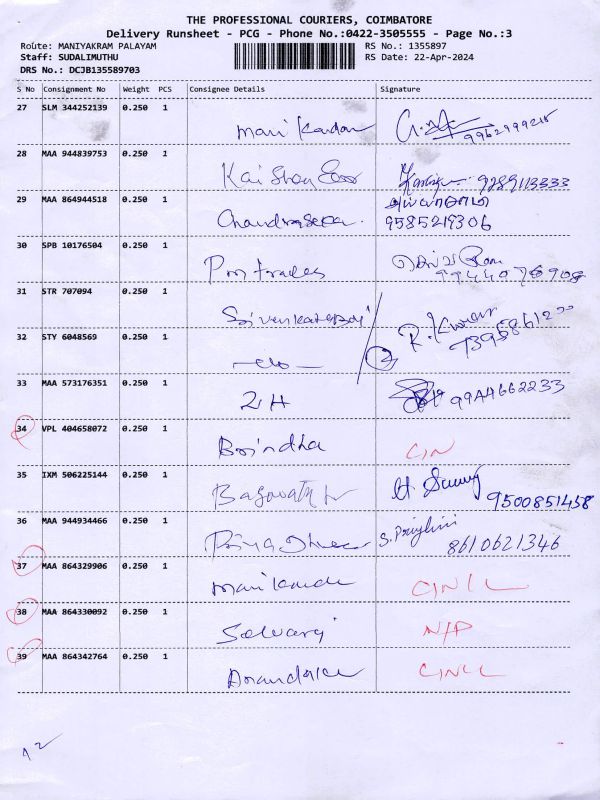 THE PROFESSIONAL COURIERS, COIMBATORE
Delivery Runsheet - PCG - Phone No.:0422-3505555 - Page No.:3
Route: MANIYAKRAM PALAYAM RS No.: 1355897
Staff: SUDALIMUTHU RS Date: 22-Apr-2024
DRS No.: DCJB135589703
S No Consignment No Weight PCS Consignee Details Signature
27 SLM 344252139 0.250 1
Mani Kandan
28 MAA 944839753 0.250 1
9289113333
29 MAA 864944518 0.250 1
Chandrasekar 9585219306
30 SPB 10176504 0.250 1
Pm trades
31 STR 707094 0.250 1
R. Kumar
32 STY 6048569 0.250 1
2
33 MAA 573176351 0.250 1
2H 99AA662233
34 VPL 404658072 0.250 1
Brindha CIN
35 IXM 506225144 0.250 1
9500851458
36 MAA 944934466 0.250 1
8610621346
37 MAA 864329906 0.250 1
Manikande CINLL
38 MAA 864330092 0.250 1
Selvaraj N/P
39 MAA 864342764 0.250 1
CINLL